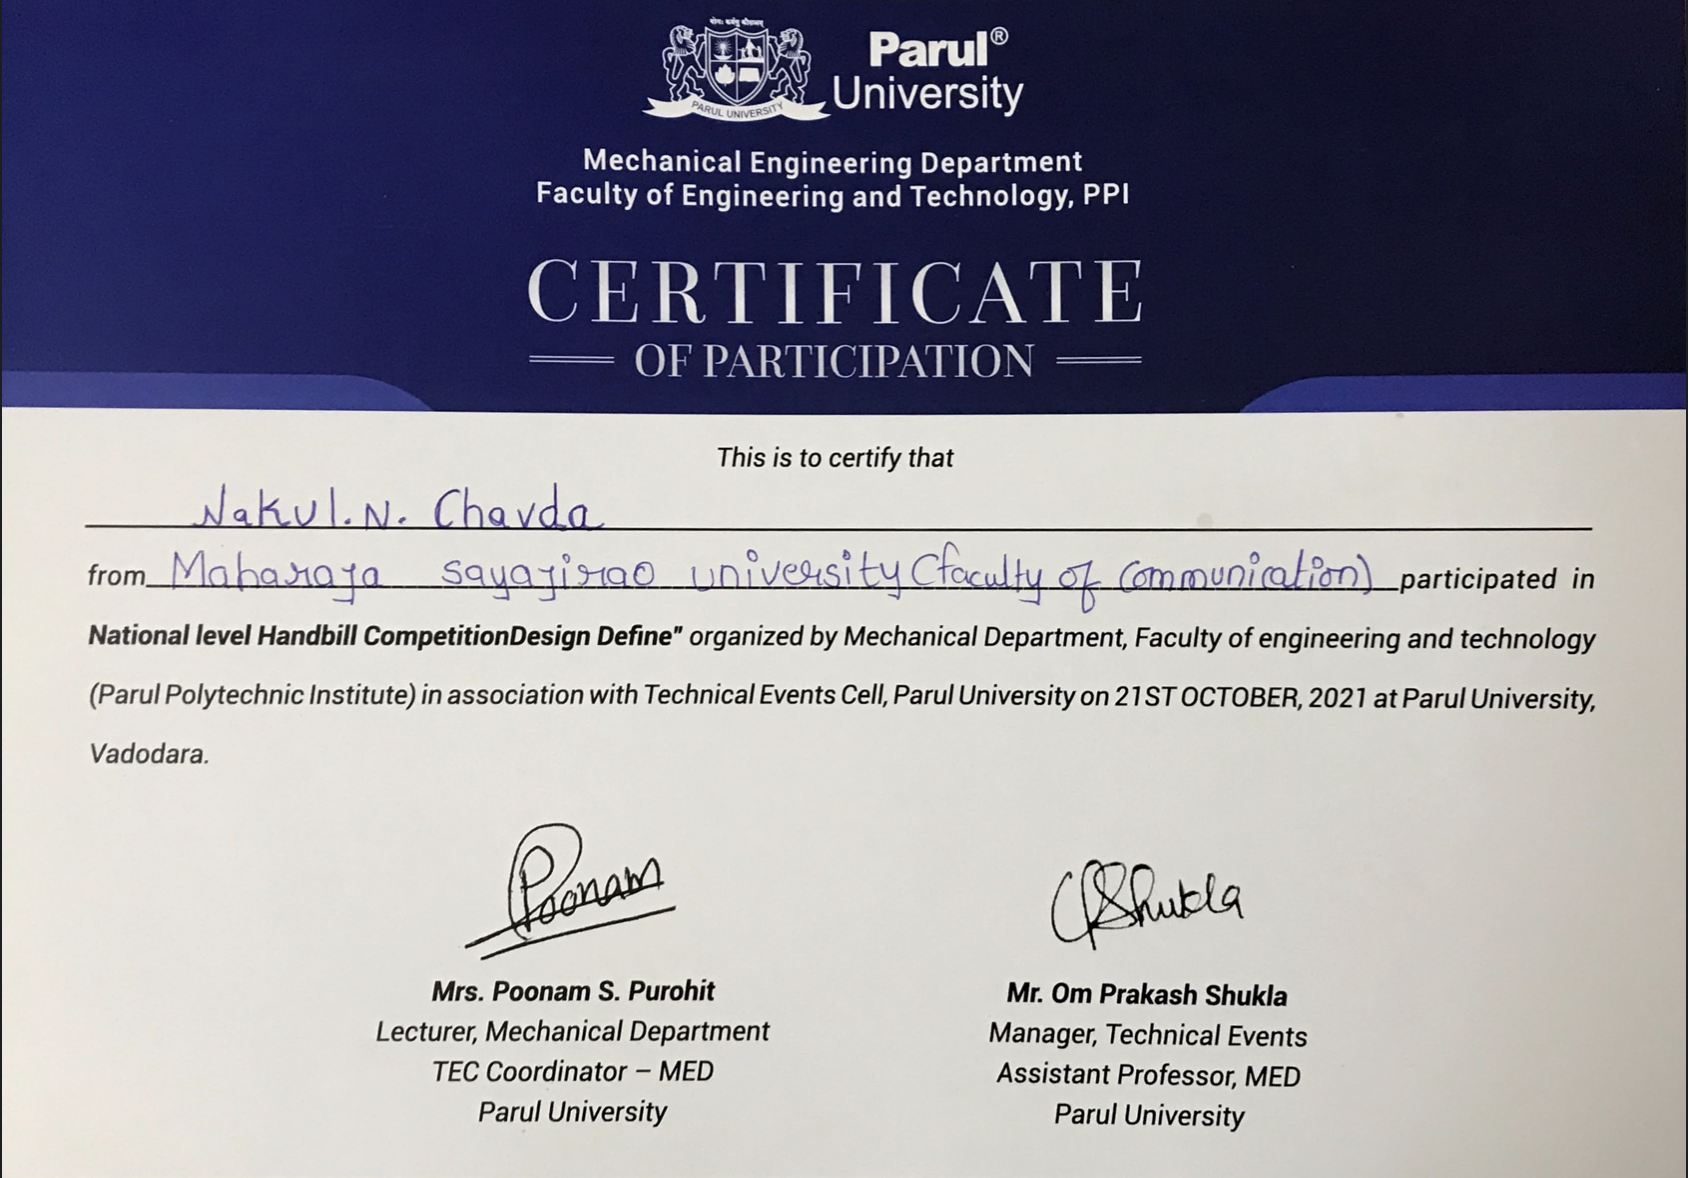 योगः कर्मसु कौशलम्
PARUL UNIVERSITY
Parul®
University
Mechanical Engineering Department
Faculty of Engineering and Technology, PPI
CERTIFICATE
OF PARTICIPATION
This is to certify that
Nakul. N. Chavda
from Maharaja sayajirao university (faculty of communication) participated in
National level Handbill CompetitionDesign Define" organized by Mechanical Department, Faculty of engineering and technology
(Parul Polytechnic Institute) in association with Technical Events Cell, Parul University on 21ST OCTOBER, 2021 at Parul University,
Vadodara.
Poonam
OPShukla
Mrs. Poonam S. Purohit
Lecturer, Mechanical Department
TEC Coordinator – MED
Parul University
Mr. Om Prakash Shukla
Manager, Technical Events
Assistant Professor, MED
Parul University